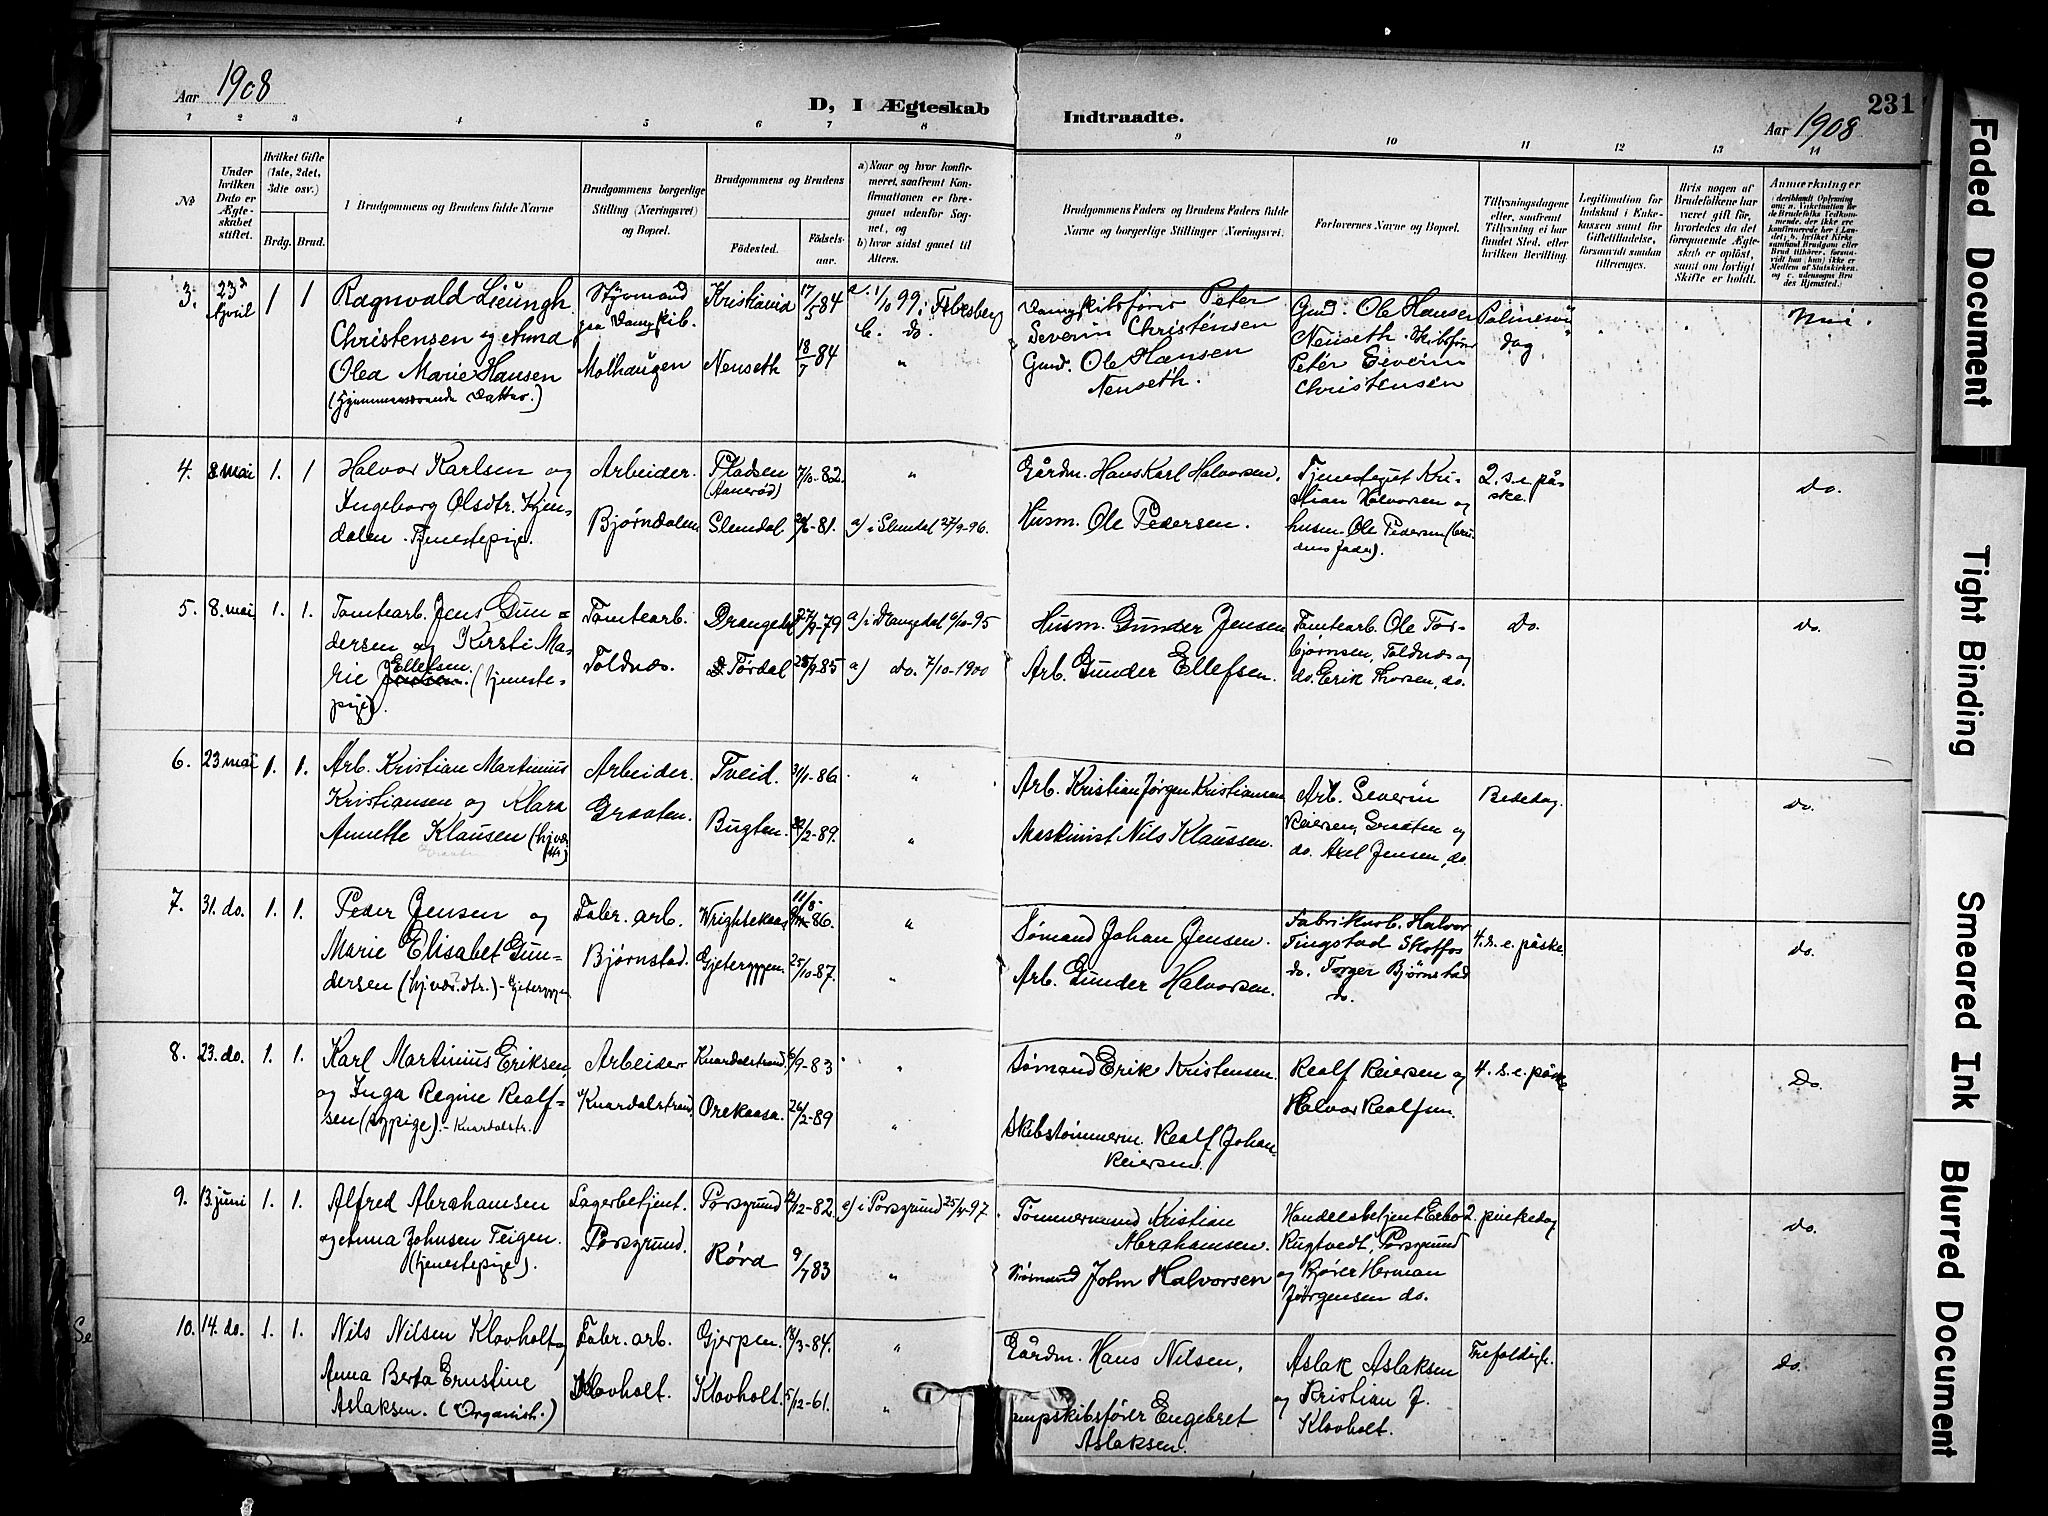 Aar 1908
D, I Ægteskab
Indtraadte.
Aar 1908
231
1 2 3 4 5 6 7 8 9 10 11 12 13 14
No
Under
hvilken
Dato er
Ægte-
skabet
stiftet.
Hvilket Gifte
(1ste, 2det,
3die osv.)
Brdg. Brud.
Brudgommens og Brudens fulde Navne
Brudgommens borgerlige
Stilling (Næringsvei)
og Bopæl.
Brudgommens og Brudens
Fødested.
Fødsels-
aar.
a) Naar og hvor konfir-
meret, saafremt Kon-
firmationen er fore-
gaaet udenfor Sog-
net, og
b) hvor sidst gaaet til
Alters.
Brudgommens Faders og Brudens Faders fulde
Navne og borgerlige Stillinger (Næringsvei).
Forlovernes Navne og Bopæl.
Tillysningsdagene
eller, saafremt
Tillysning ei har
fundet Sted, efter
hvilken Bevilling.
Legitimation for
Indskud i Enke-
kassen samt for
Giftetilladelse,
forsaavidt saadan
tiltrænges.
Hvis nogen af
Brudefolkene har
været gift før,
hvorledes da det
foregaaende Ægte-
skab er opløst,
samt om lovligt
Skifte er holdt.
Anmærkninger
3. 23d April 1 1
Ragnvald Lieungh
Christensen og Anna
Olea Marie Hansen
(hjemmeværende Datter.)
Styrmand
paa Dampskib.
Molhaugen
Kristiania 17/5 84
Nenseth 18/7 84
a. 1/10 99 i
b. do.
"
Dampskibsfører Peter
Severin Christensen
Gmd. Ole Hansen
Nenseth.
Gmd. Ole Hansen
Nenseth. Skibsfører
Peter Severin
Christensen
dag
4. 8. mai 1. 1
Halvor Karlsen og
Ingeborg Olsdtr. Kjen-
dalen. Tjenestepige.
Arbeider.
Bjørndalen
Pladsen 7/10-82.
Slemdal -81.
"
a) i Slemdal 27/9-96.
Gårdm. Hans Karl Halvorsen.
Husm. Ole Pedersen.
Kri-
stian Halvorsen og
husm. Ole Pedersen (bru-
dens fader).
2. s. e. på-
ske.
do.
5. 8. mai 1. 1.
Tomtearb. Jens Gun-
dersen og Kirsti Ma-
rie Ellefsen. (tjeneste-
pige).
Tomtearb.
Toldnæs.
Drangedal 27/9-79
Tørdal 85
a) i Drangedal 6/10-95
a) do. 7/10-1900
Husm. Gunder Jensen
Arb. Gunder Ellefsen.
Tomtearb. Ole Tor-
bjørnsen, Toldnæs og
do. Erik Thorsen, do.
Do.
do.
6. 23 mai 1. 1.
Arb. Kristian Martinius
Kristiansen og Klara
Annette Klausen
Arbeider.
Graaten.
Tveid. 3/1-86
Bugten. /2-89.
"
"
Arb. Kristian Jørgen Kristiansen
Maskinist Nils Klaussen.
Arb. Severin
Reiersen, Graaten og
do. Axel Jensen, do.
Bededag.
do.
7. 31. do. 1. 1.
Peder Jensen og
Marie Elisabet Gun-
dersen (hj.vær. dtr.) -
Fabr. arb.
Bjørnstad.
11/8 86.
25/10-87.
"
"
Sømand Johan Jensen.
Arb. Gunder Halvorsen.
Fabrikarb. Halvor
Tingstad Skotfos
do. Torger Bjørnstad
do.
4. s. e. påske.
do.
8. 23. do. 1. 1.
Karl Martinius Eriksen
og Inga Regine Realf-
sen (sypige). - Knardalstr.
Arbeider
Knardalstrand.
Knardalstrand. /9-83
Orekaasa. 26/2-89
"
"
Sømand Erik Kristensen.
Skibstømmerm. Realf Johan
Reiersen.
Realf Reiersen og
Halvor Realfsen.
4. s. e. påske
Do.
9. 13. juni 1. 1.
Alfred Abrahamsen
og Anna Johnsen Teigen.
(tjenestepige).
Lagerbetjent.
Porsgrund.
Porsgrund /12-82.
Rørd 9/7 83
a) i Porsgrund 25/4-97.
"
Tømmermand Kristian
Abrahamsen.
Sømand John Halvorsen
Handelsbetjent
Rugtvedt, Porsgrund
og Herman
Jørgensen do.
2. pinsedag
do.
10. 14. do. 1. 1.
Nils Nilsen Klovholt og
Anna Berta Ernstine
Aslaksen. (Organist.)
Fabr. arb.
Klovholt.
Gjerpen. /3-84.
Klovholt. 5/12-61.
"
"
Gårdm. Hans Nilsen,
ampskibsfører Engebret
Aslaksen.
Aslak Aslaksen
og Kristian J.
Klovholt.
Trefoldigh.
do.
Faded Document
Tight Binding
Smeared Ink
Blurred Document